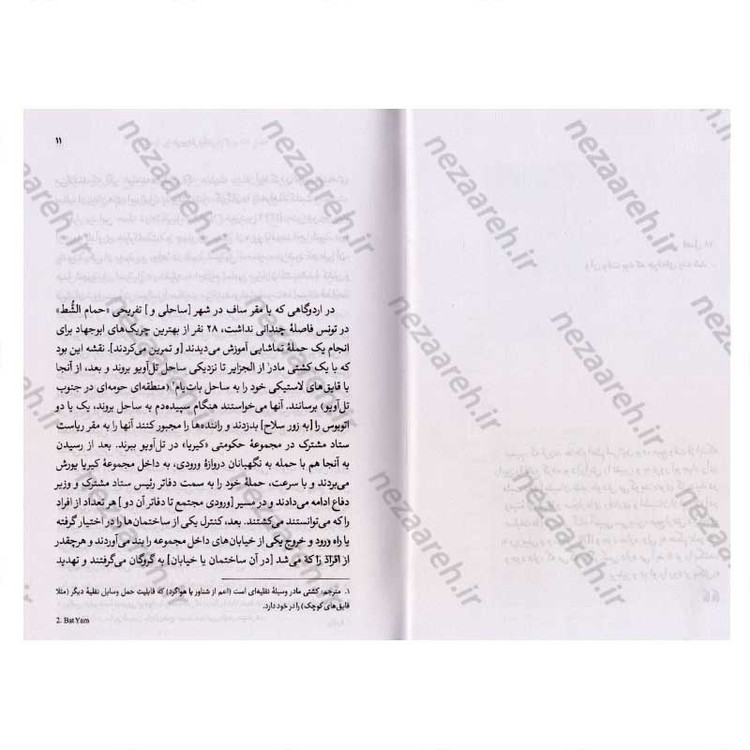 ۱۱
در اردوگاهی که با مقر ساف در شهر [ساحلی و] تفریحی «حمام الشُّط»
در تونس فاصلهٔ چندانی نداشت، ۲۸ نفر از بهترین چریک‌های ابوجهاد برای
انجام یک حملهٔ تماشایی آموزش می‌دیدند [و تمرین می‌کردند]. نقشه این بود
که با یک کشتی مادر¹ از الجزایر تا نزدیکی ساحل تل‌آویو بروند و بعد، از آنجا
با قایق‌های لاستیکی خود را به ساحل بات‌یام² (منطقه‌ای حومه‌ای در جنوب
تل‌آویو) برسانند. آنها می‌خواستند هنگام سپیده‌دم به ساحل بروند، یک یا دو
اتوبوس را [به زور سلاح] بدزدند و راننده‌ها را مجبور کنند آنها را به مقر ریاست
ستاد مشترک در مجموعهٔ حکومتی «کیریا» در تل‌آویو ببرند. بعد از رسیدن
به آنجا هم با حمله به نگهبانان دروازهٔ ورودی، به داخل مجموعهٔ کیریا یورش
می‌بردند و با سرعت، حملهٔ خود را به سمت دفاتر رئیس ستاد مشترک و وزیر
دفاع ادامه می‌دادند و در مسیر [ورودی مجتمع تا دفاتر آن دو] هر تعداد از افراد
را که می‌توانستند می‌کشتند. بعد، کنترل یکی از ساختمان‌ها را در اختیار گرفته
یا راه ورود و خروج یکی از خیابان‌های داخل مجموعه را بند می‌آوردند و هرچقدر
از افراد را که می‌شد [در آن ساختمان یا خیابان] به گروگان می‌گرفتند و تهدید
۱. مترجم: کشتی مادر وسیلهٔ نقلیه‌ای است (اعم از شناور یا هواگرد) که قابلیت حمل وسایل نقلیهٔ دیگر (مثلا
قایق‌های کوچک) را در خود دارد.
2. Bat Yam
nezaareh.ir
nezaareh.ir
nezaareh.ir
nezaareh.ir
nezaareh.ir
nezaareh.ir
nezaareh.ir
nezaareh.ir